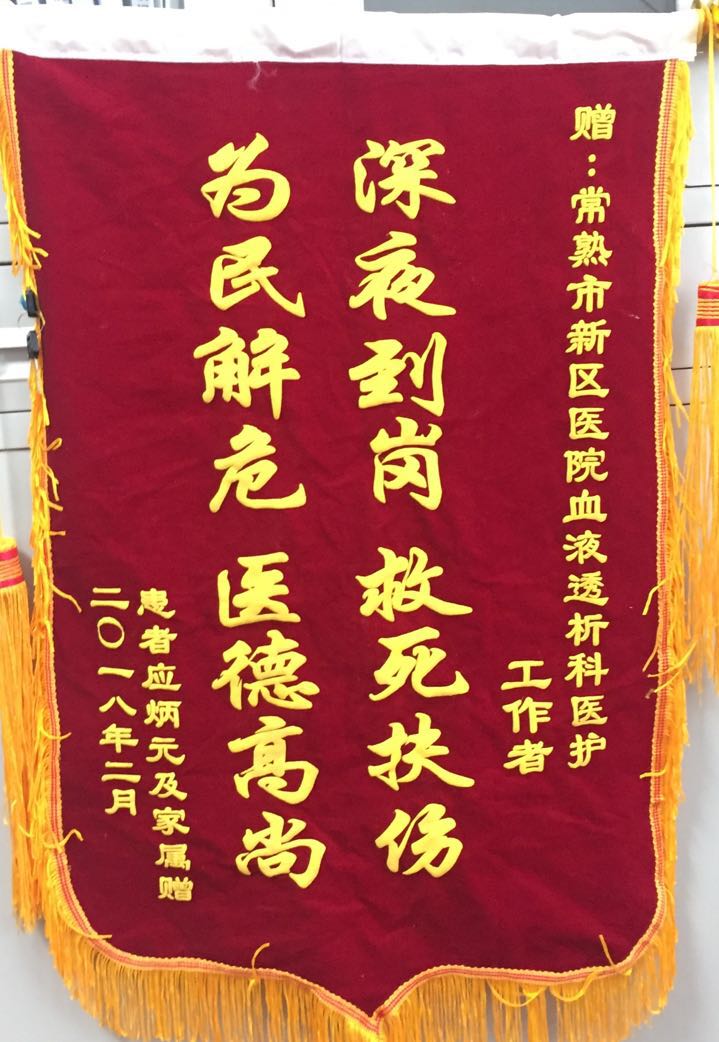 赠：常熟市新区医院血液透析科医护
工作者
深夜到岗 救死扶伤
为民解危 医德高尚
患者应炳元及家属赠
二〇一八年二月